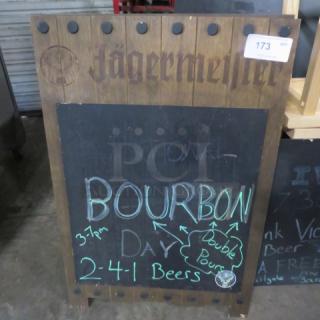 173
Jägermeister
PCI
BOURBON
3-7pm
DAY
Double
Pours
2-4-1 Beers
Beer
A FREE